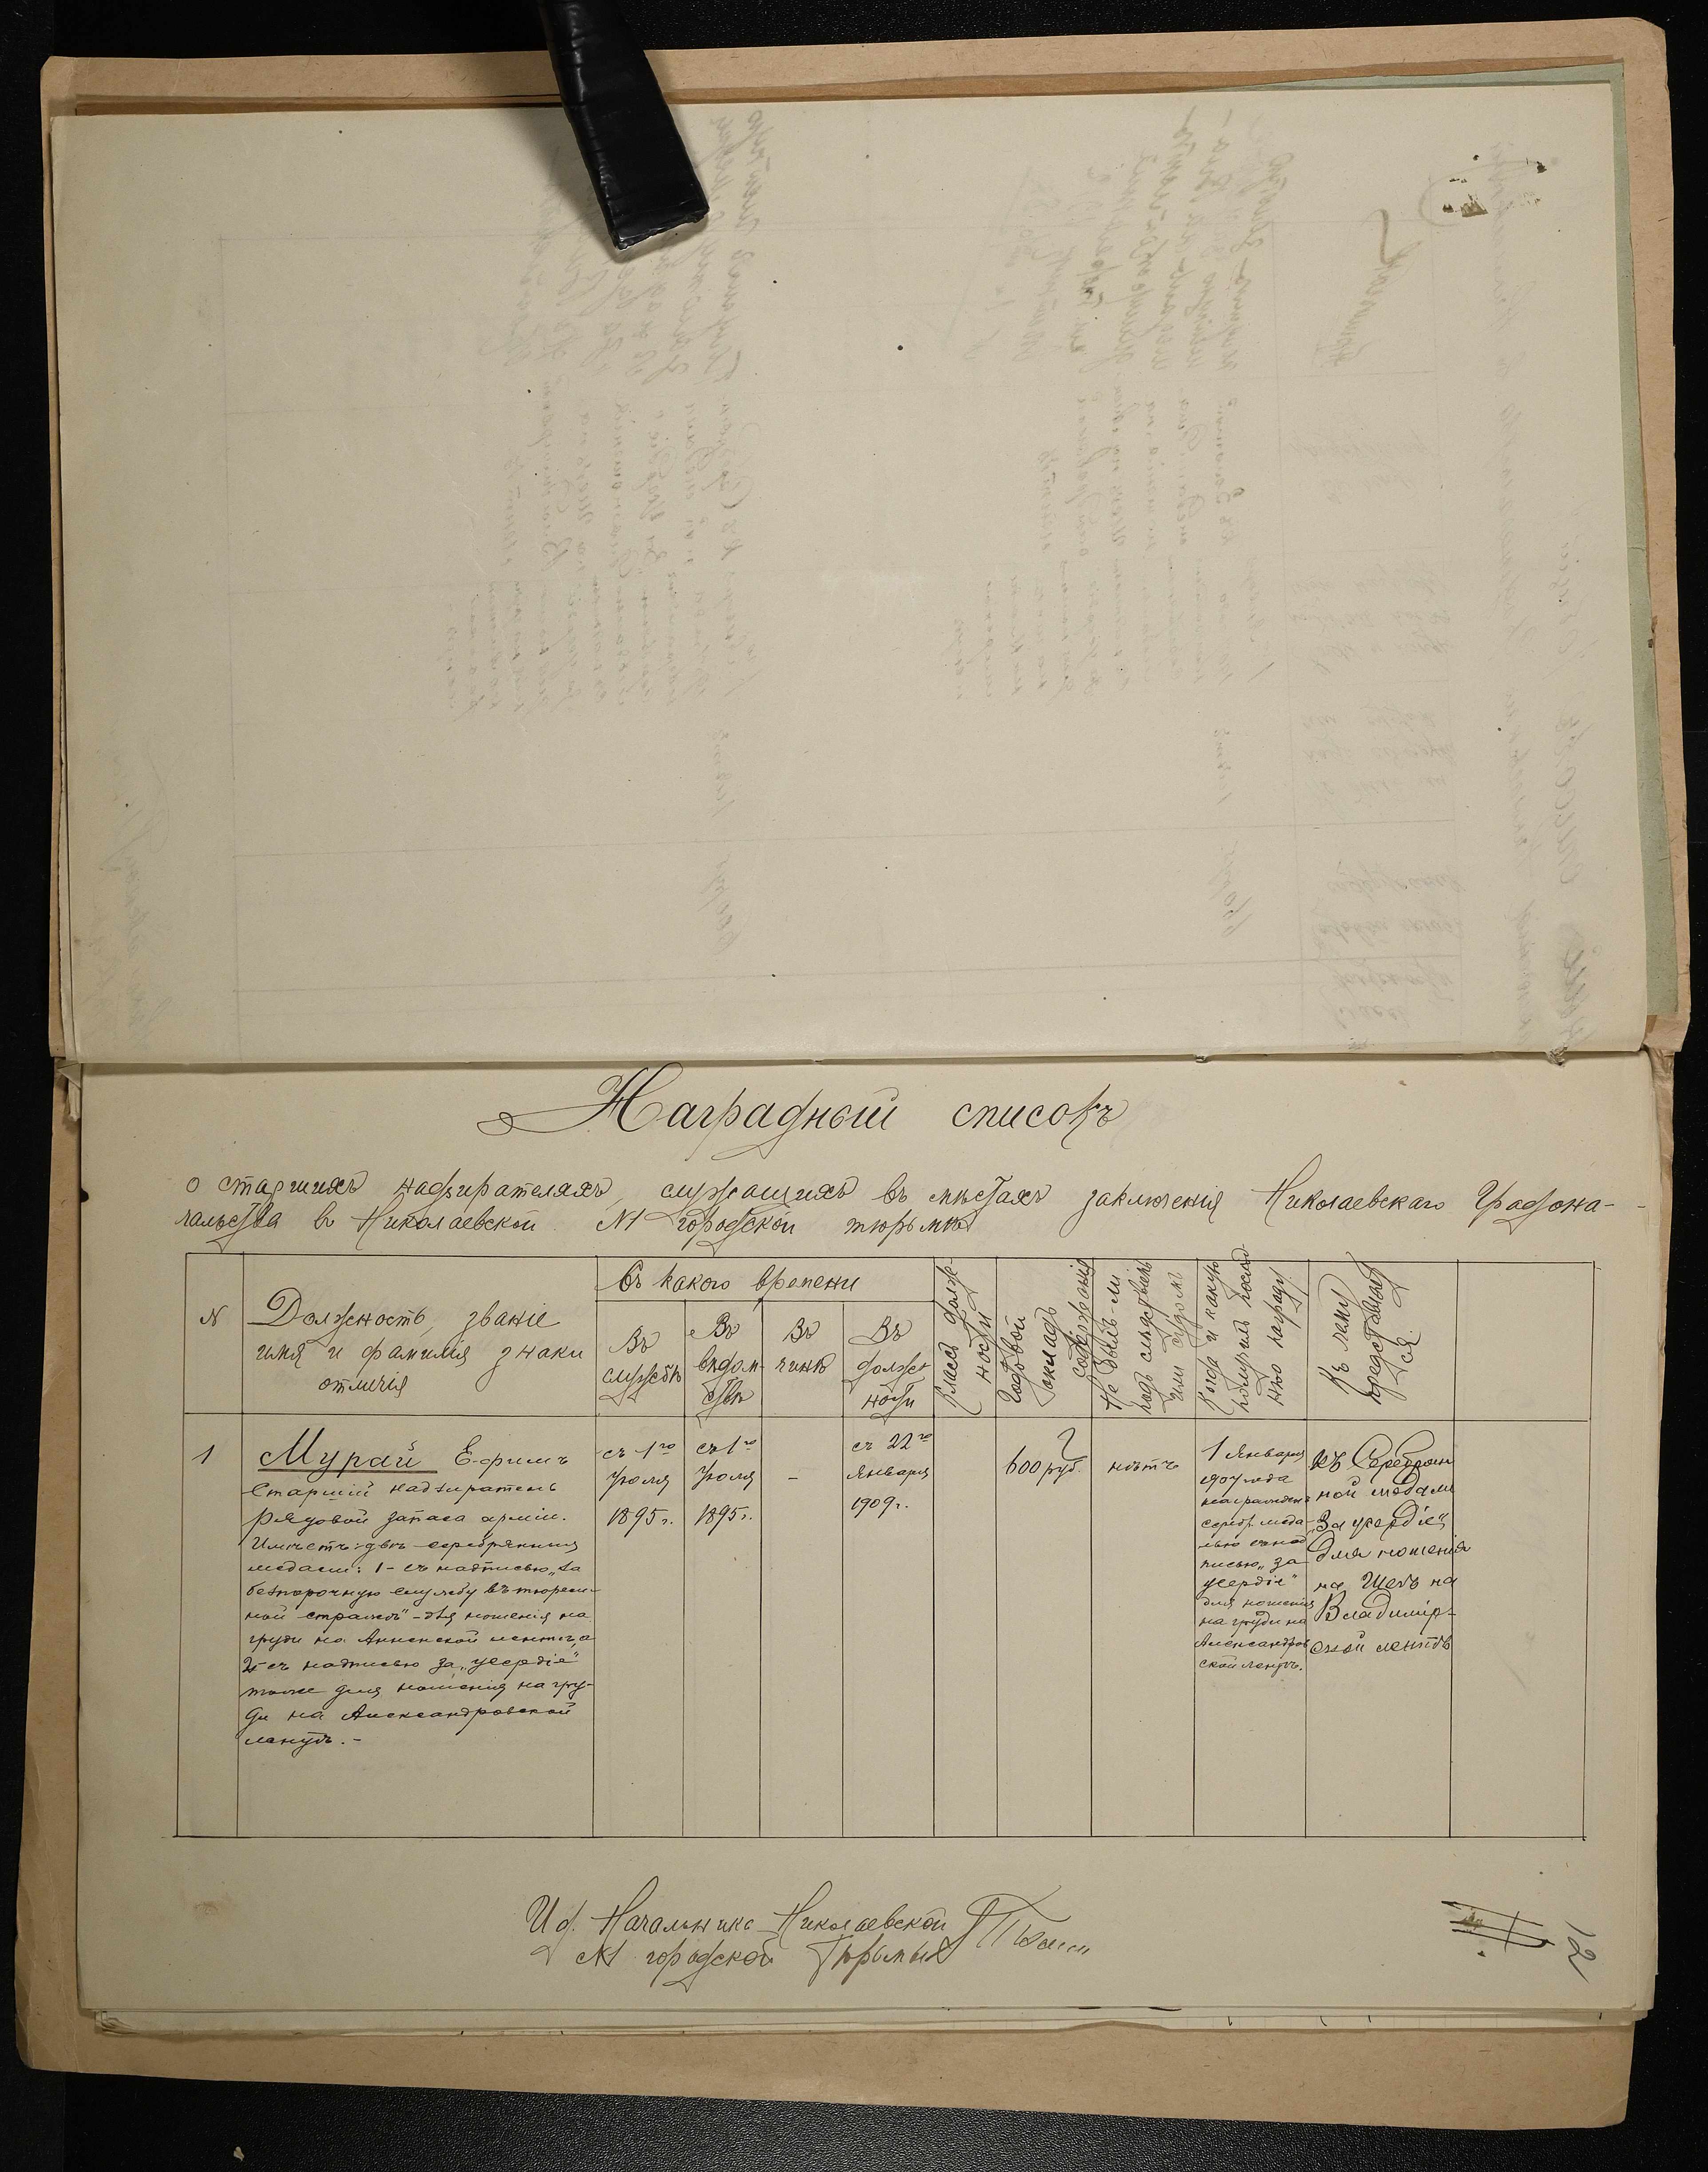 Наградной списокъ
о старшихъ надзирателяхъ, служащихъ въ мѣстахъ заключенія Николаевскаго Градона-
чальства въ Николаевской №1 городской тюрьмѣ
N
Должность, званіе
имя и фамилія знаки
отличія
Съ какого времени
Въ
службѣ
Въ
вѣдом-
ствѣ
Въ
чинѣ
Въ
долж-
ности
Классъ долж-
ности
Годовой
окладъ
содержанія
Не былъ-ли
подъ слѣдствіемъ
или судомъ
Когда и какую
получилъ послѣд
нюю награду
Къ чему
представляет
ся.
1
Мурай Ефимъ
Старшій надзиратель
рядовой запаса арміи.
Имѣетъ: двѣ серебрянныя
медали: 1 - съ надписью „За
безпорочную службу въ тюрем-
ной стражѣ" - для ношенія на
груди на Анненской лентѣ, а
2я съ надписью за „усердіе"
тоже для ношенія на гру-
ди на Александровской
лентѣ. -
съ 1го
Іюля
1895 г.
съ 1го
Іюля
1895 г.
-
съ 22го
Января
1909 г.
600 руб.
нѣтъ
1 Января
1907 года
награжденъ
серебр. меда-
лью съ над
писью „за
усердіе"
для ношенія
на груди на
Александров
ской лентѣ.
Къ Серебрян
ной медали
„За усердіе"
для ношенія
на шеѣ на
Владимір-
ской лентѣ
И д. Начальника Николаевской
№1 городской Тюрьмы
12